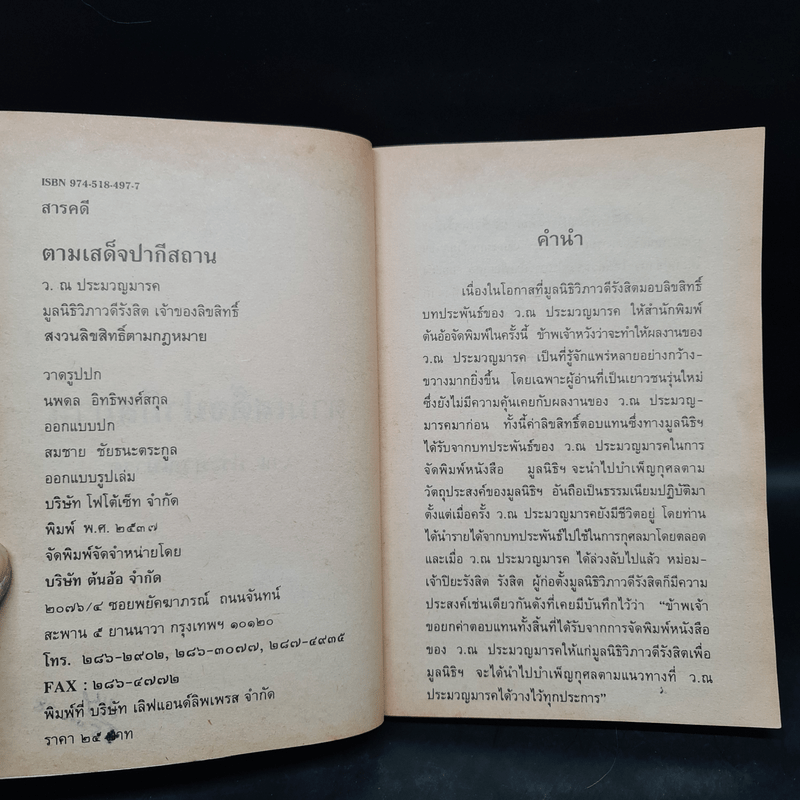 ISBN 974-518-497-7
สารคดี
ตามเสด็จปากีสถาน
ว. ณ ประมวญมารค
มูลนิธิวิภาวดีรังสิต เจ้าของลิขสิทธิ์
สงวนลิขสิทธิ์ตามกฎหมาย
วาดรูปปก
นพดล อิทธิพงศ์สกุล
ออกแบบปก
สมชาย ชัยธนะตระกูล
ออกแบบรูปเล่ม
บริษัท โฟโต้เซ็ท จำกัด
พิมพ์ พ.ศ. ๒๕๓๗
จัดพิมพ์จัดจำหน่ายโดย
บริษัท ต้นอ้อ จำกัด
๒๐๗๖/๔ ซอยพยัคฆาภรณ์ ถนนจันทน์
สะพาน ๕ ยานนาวา กรุงเทพฯ ๑๐๑๒๐
โทร. ๒๘๖-๒๙๐๒, ๒๘๖-๓๐๗๗, ๒๘๗-๔๙๓๕
FAX : ๒๘๖-๔๗๗๒
พิมพ์ที่ บริษัท เลิฟแอนด์ลิพเพรส จำกัด
ราคา ๒๕ บาท
คำนำ
เนื่องในโอกาสที่มูลนิธิวิภาวดีรังสิตมอบลิขสิทธิ์
บทประพันธ์ของ ว.ณ ประมวญมารค ให้สำนักพิมพ์
ต้นอ้อจัดพิมพ์ในครั้งนี้ ข้าพเจ้าหวังว่าจะทำให้ผลงานของ
ว.ณ ประมวญมารค เป็นที่รู้จักแพร่หลายอย่างกว้าง-
ขวางมากยิ่งขึ้น โดยเฉพาะผู้อ่านที่เป็นเยาวชนรุ่นใหม่
ซึ่งยังไม่มีความคุ้นเคยกับผลงานของ ว.ณ ประมวญ-
มารคมาก่อน ทั้งนี้ค่าลิขสิทธิ์ตอบแทนซึ่งทางมูลนิธิฯ
ได้รับจากบทประพันธ์ของ ว.ณ ประมวญมารคในการ
จัดพิมพ์หนังสือ มูลนิธิฯ จะนำไปบำเพ็ญกุศลตาม
วัตถุประสงค์ของมูลนิธิฯ อันถือเป็นธรรมเนียมปฏิบัติมา
ตั้งแต่เมื่อครั้ง ว.ณ ประมวญมารคยังมีชีวิตอยู่ โดยท่าน
ได้นำรายได้จากบทประพันธ์ไปใช้ในการกุศลมาโดยตลอด
และเมื่อ ว.ณ ประมวญมารค ได้ล่วงลับไปแล้ว หม่อม-
เจ้าปิยะรังสิต รังสิต ผู้ก่อตั้งมูลนิธิวิภาวดีรังสิตก็มีความ
ประสงค์เช่นเดียวกันดังที่เคยมีบันทึกไว้ว่า "ข้าพเจ้า
ขอยกค่าตอบแทนทั้งสิ้นที่ได้รับจากการจัดพิมพ์หนังสือ
ของ ว.ณ ประมวญมารคให้แก่มูลนิธิวิภาวดีรังสิตเพื่อ
มูลนิธิฯ จะได้นำไปบำเพ็ญกุศลตามแนวทางที่ ว.ณ
ประมวญมารคได้วางไว้ทุกประการ"